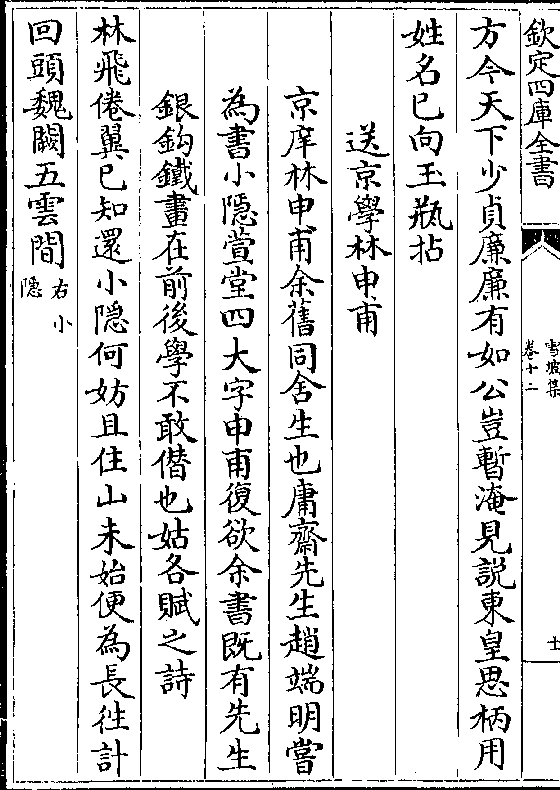 欽定四庫全書
方今天下少貞廉廉有如公豈暫淹見說東皇思柄用
姓名已向玉瓶拈
送京學林申甫
京庠林申甫余舊同舍生也庸齋先生趙端明嘗
為書小隠萱堂四大字申甫復欲余書既有先生
銀鈎鐵畫在前後學不敢僭也姑各賦之詩
林飛倦翼已知還小隠何妨且住山未始便為長往計
回頭魏闕五雲間右小
隠
雪坡集
卷十二
士